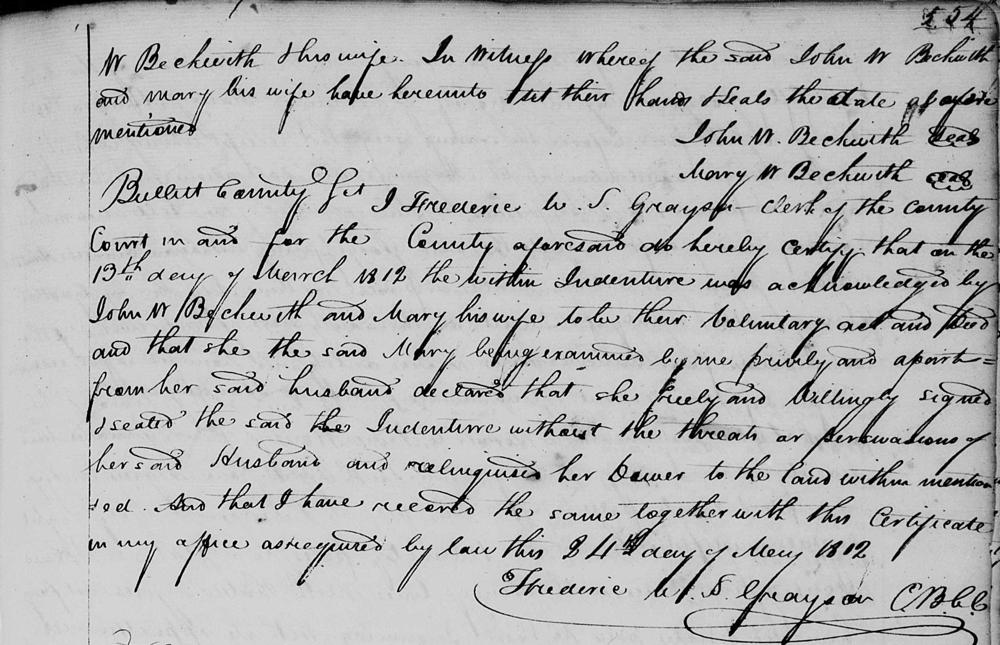 534
W Beckwith & his wife. In Witness whereof the said John W Beckwith
and Mary his wife have hereunto set their hands & seals the date afore
mentioned
John W. Beckwith Seal
Mary W Beckwith Seal
Bullitt County Sct I Frederic W. S. Grayson Clerk of the County
Court in and for the County aforesaid do hereby certify that on the
13th day of March 1812 the within Indenture was acknowledged by
John W Beckwith and Mary his wife to be their Voluntary act and Deed
and that she the said Mary being examined by me privily and apart =
from her said husband declared that she freely and Willingly signed
& sealed the said the Indenture without the threats or perswasions of
her said Husband and relinquised her Dower to the land within mention
=ed. And that I have recored the same together with this Certificate
in my office as required by law this 24th day of May 1812
Frederic W. S Grayson C.B.C.C